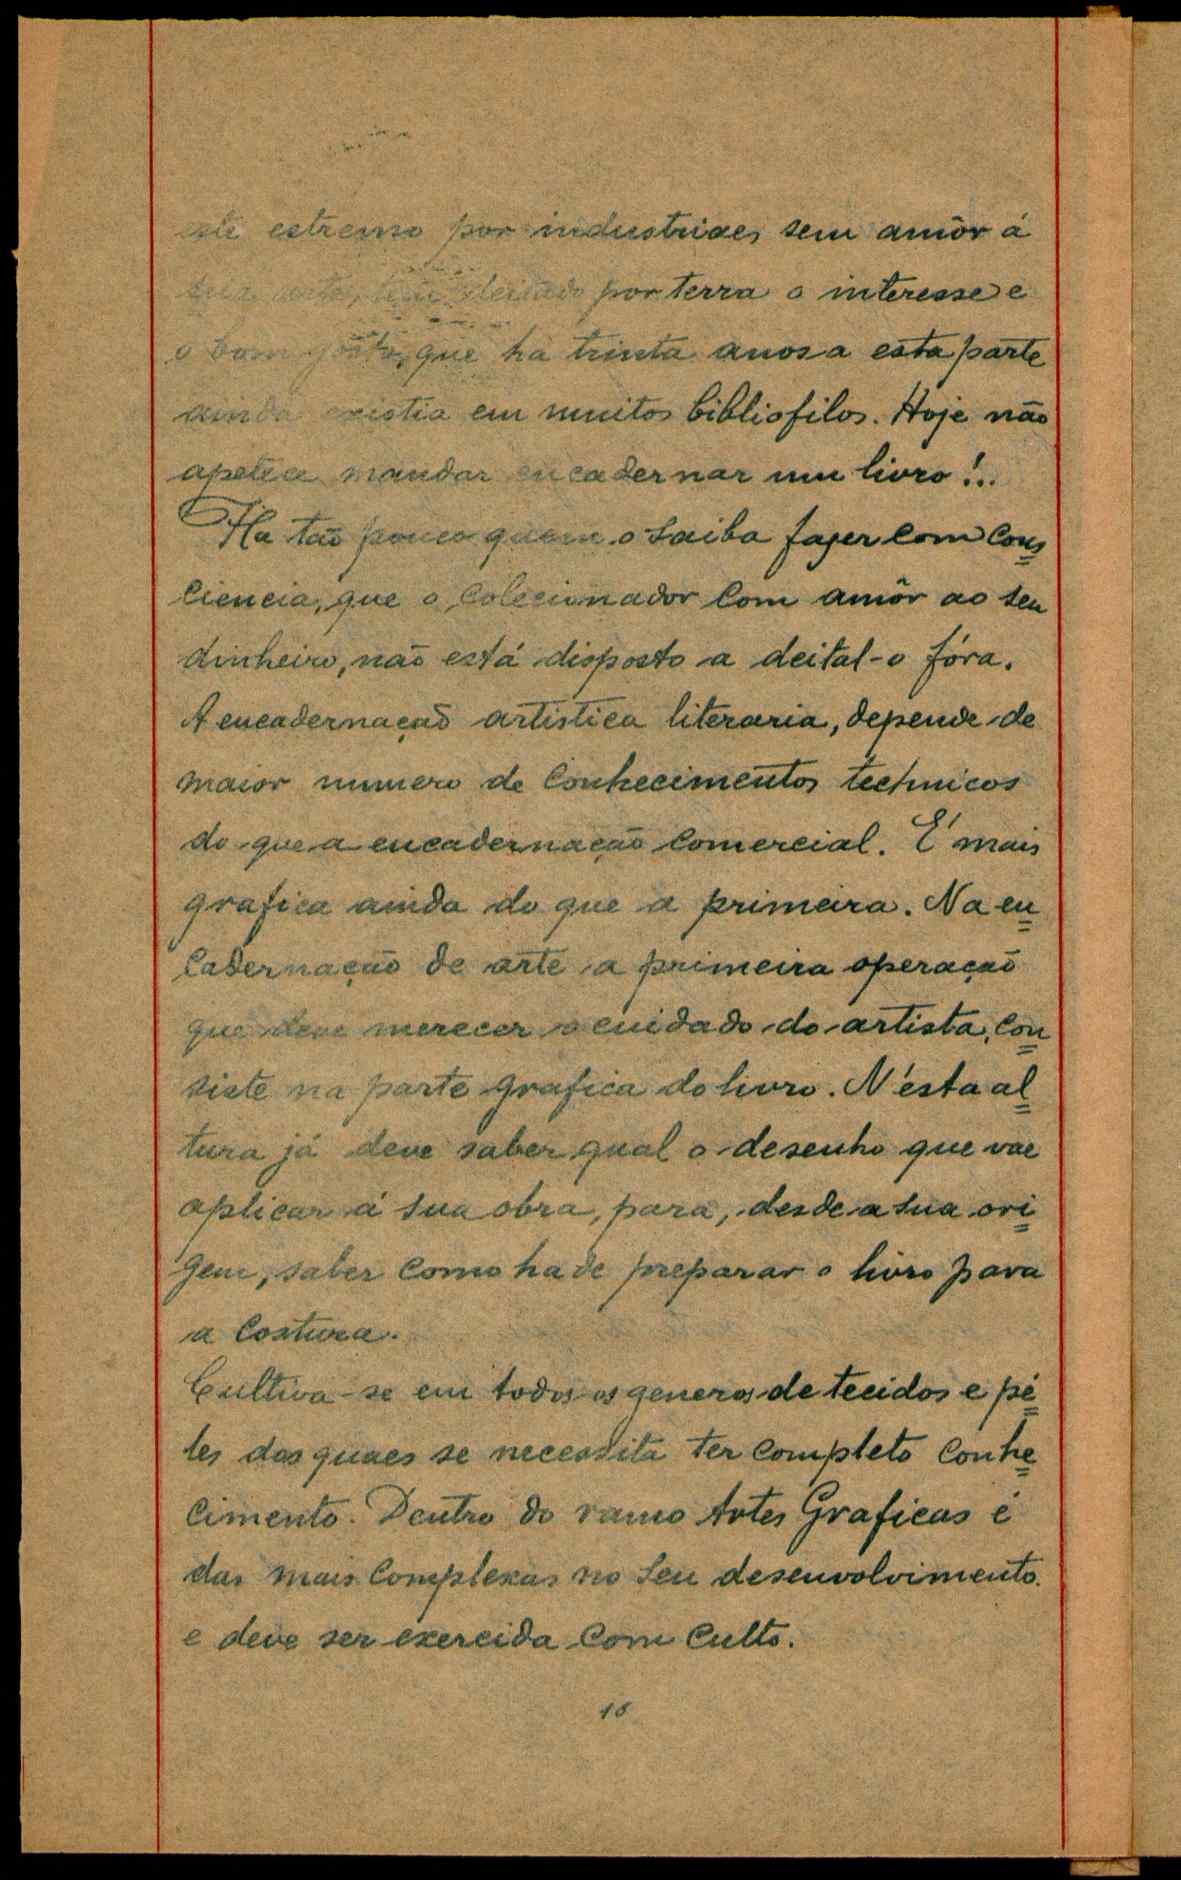 este estremo por industriaes sem amôr á
sua arte, tem deitado por terra o interesse e
o bom gôsto, que ha trinta anos a esta parte
ainda existia em muitos bibliofilos. Hoje não
apetece mandar encadernar um livro!..
Ha tão pouco quem o saiba fazer com cons
ciencia, que o colecionador com amôr ao seu
dinheiro, não está disposto a deital-o fóra.
A encadernação artistica literaria, depende de
maior numero de conhecimentos technicos
do que a encadernação comercial. É mais
grafica ainda do que a primeira. Na en
cadernação de arte a primeira operação
que deve merecer o cuidado do artista, con
siste na parte grafica do livro. N'esta al
tura já deve saber qual o desenho que vae
aplicar á sua obra, para, desde a sua ori
gem, saber como ha de preparar o livro para
a costura.
Cultiva-se em todos os generos de tecidos e pé
les dos quaes se necessita ter completo conhe
cimento. Dentro do ramo Artes Graficas é
das mais complexas no seu desenvolvimento
e deve ser exercida com culto.